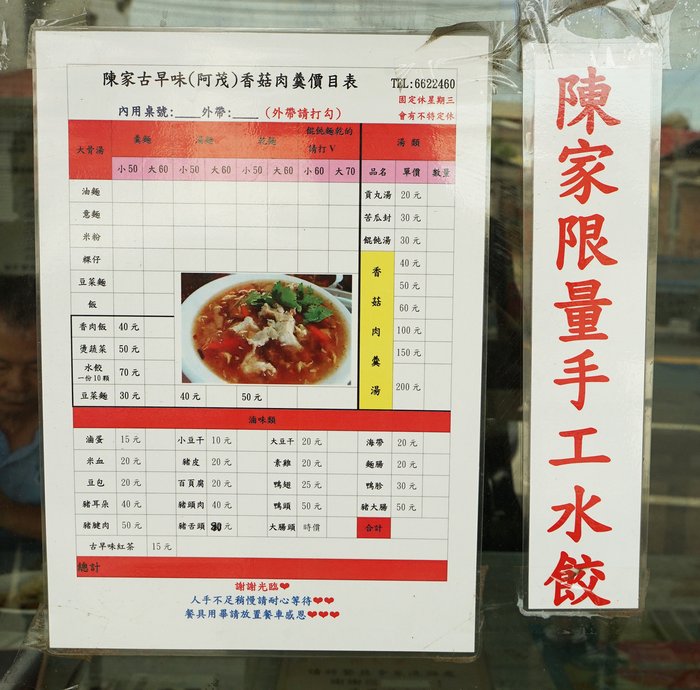 陳家古早味(阿茂)香菇肉羹價目表
TEL:6622460
固定休星期三
會有不特定休
內用桌號:____外帶:____ (外帶請打勾)
大骨湯 羹麵 湯麵 乾麵 餛飩麵乾的請打V 湯類
小50 大60 小50 大60 小50 大60 小60 大70 品名 單價 數量
油麵 貢丸湯 20元
意麵 苦瓜封 30元
米粉 餛飩湯 30元
粿仔 香菇肉羹湯 40元
豆菜麵 50元
飯 60元
香肉飯 40元 100元
燙蔬菜 50元 150元
水餃 一份10顆 70元 200元
豆菜麵 30元 40元 50元
滷味類
滷蛋 15元 小豆干 10元 大豆干 20元 海帶 20元
米血 20元 豬皮 20元 素雞 20元 麵腸 20元
豆包 20元 百頁腐 20元 鴨翅 25元 鴨胗 30元
豬耳朵 40元 豬頭肉 40元 鴨頭 50元 豬大腸 50元
豬腱肉 50元 豬舌頭 元 大腸頭 時價 合計
古早味紅茶 15元
總計
謝謝光臨❤
人手不足稍慢請耐心等待❤❤
餐具用畢請放置餐車感恩❤❤❤
陳家限量手工水餃